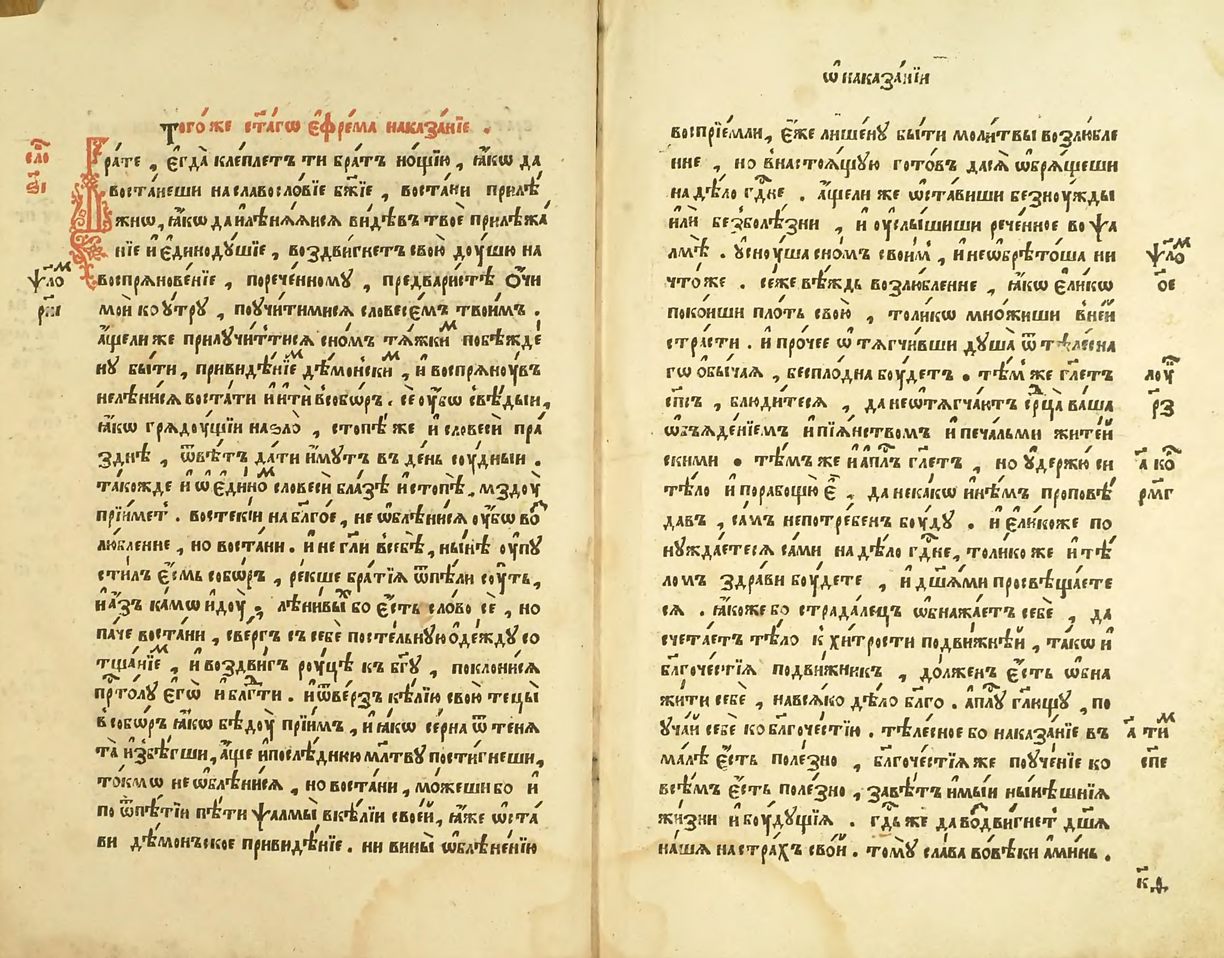 Того́же ст҃а́гѡ є҆фре́ма наказа́нїе .
сло
в҃і
Бра́те , є҆гда̀ клепле́тъ ти бра́тъ но́щїю , ꙗ҆́кѡ да
воста́неши на славосло́вїе бж҃їе , воста́ни прилѣ́
жнѡ, ꙗ҆́кѡ да и҆лѣня́яися ви́дѣвъ твоѐ прилѣжа́
нїе и҆ є҆динодꙋ́шїе , воздви́гнетъ свою̀ дꙋ́шꙋ на
воспрѧнове́нїе , порече́нномꙋ , предвари́стѣ ѻ҆́чи
ѱло́м
рм҃і
мои̑ ко ᲂу҆́трꙋ , поꙋчи́тимисѧ словесє́мъ твои̑мъ .
а҆́щели же прилꙋчи́ттисѧ сно́мъ тѧ́жким побѣжде́
нꙋ бы́ти , привидѣ́нїем дѣ́монским , и҆ воспрѧнꙋ́въ
нелѣни́сѧ воста́ти и҆ и҆тѝ в̾собо́ръ . се ᲂу҆́бѡ свѣ́дыи ,
ꙗ҆́кѡ грѧдꙋ́щїи на ѕло̀ , стопѣ́ же и҆ словесѝ пра́
зднѣ , ѿвѣ́тъ да́ти и҆́мꙋтъ в̾ де́нь сꙋ́дныи .
та́кожде и҆ ѡ҆ є҆ди́ном словесѝ бла́зѣ и҆ стопѣ̀ , мздꙋ̀
прїи́мет . востекі́и на бл҃го́е , не ѡ҆блѣни́сѧ ᲂу҆́бѡ во
лю́бленне , но воста́ни . и҆ не гл҃и в̾себѣ̀ , ны́нѣ ᲂу҆пꙋ
сти́лъ є҆́смь собо́ръ , ре́кше бра́тїѧ ѿпѣ́ли сꙋ́ть ,
и҆ а҆́зъ ка́мѡ и҆дꙋ̀ ; лѣни́вых бо є҆́сть сло́во сѐ , но
па́че воста́ни , све́ргъ съ себѐ посте́льнꙋю ѻ҆де́ждꙋ со
тща́нїем , и҆ воздви́гъ рꙋ́цѣ къ бг҃ꙋ , поклони́сѧ
прⷭ҇то́лꙋ є҆гѡ̀ и҆ блгⷣти . и҆ ѿве́рзъ кѣ́лїю свою̀ тецы̀
в̾собо́ръ ꙗ҆́кѡ бѣдꙋ̀ прїи́мъ , и҆ ꙗ҆́кѡ се́рна ѿ тенѧ́
та и҆збѣ́гши , а҆́ще и҆ послѣ́днюю мл҃твꙋ пости́гнеши ,
то́кмѡ не ѡ҆блѣни́сѧ , но воста́ни , мо́жеши бо и҆
по ѿпѣ́тїи пѣ́ти ѱалмы̀ в̾кѣ́лїи свое́й , ꙗ҆́же ѡ҆ста́
ви дѣ́монъское привидѣ́нїе . ни вины̀ ѡ҆блѣне́нїю
ѡ҆ наказа́нїи
воспрїе́мли , є҆́же лише́нꙋ бы́ти моли́твы возлю́бле
нне , но в̾настоѧ́щꙋю гото́въ да сѧ̀ ѡ҆брѧ́щеши
на дѣ́ло гдⷭ҇не . а҆́щели же ѡ҆ста́виши без нꙋ́жды
и҆лѝ без̾ болѣ́зни , и҆ ᲂу҆слы́шиши рече́нное во ѱа
лмѣ̀ . ᲂу҆снꙋ́ша сно́мъ свои́м , и҆ не ѡ҆брѣто́ша ни
ѱло́м
о҃е
что́же . се́же вѣ́ждь возлю́бленне , ꙗ҆́кѡ є҆ли́кѡ
поко́иши пло́ть свою̀ , толи́кѡ мно́жиши в̾не́й
стра́сти . и҆ про́чее ѿ тѧгчи́вши дꙋша̀ ѿ тѣле́сна
гѡ ѻ҆бы́чаѧ , беспло́дна бꙋ́детъ . тѣ́м же гл҃етъ
лꙋⷦ҇
р҃з
сп҃съ , блюди́тесѧ , да не ѡ҆тѧгча́ютъ срⷣца ва́ша
ѡ҆б̾ѧде́нїемъ и҆ пїѧ́нствомъ и҆ печа́льми жите́й
скими . тѣ́мъ же и҆ а҆пⷭ҇лъ гл҃етъ , но ᲂу҆держю̀ си
а҃ ко
рм҃г
тѣ́ло и҆ порабощю̀ є҆̀ , да не ка́кѡ и҆нѣ́мъ проповѣ́
давъ , са́мъ непотре́бенъ бꙋ́дꙋ . и҆ є҆ли́коже по
нꙋжда́етесѧ са́ми на дѣ́ло гдⷭ҇не , толи́ко же и҆ тѣ́
ломъ здра́ви бꙋ́дете , и҆ дш҃а́ми просвѣща́ете
сѧ . ꙗ҆́коже бо страда́лецъ ѡ҆бнажа́етъ себѐ , да
счета́етъ тѣ́ло к̾ хи́трости подви́жнѣй , та́кѡ и҆
бл҃гоче́стїѧ подви́жникъ , до́лженъ є҆́сть ѡ҆бна
жи́ти себѐ , на всѧ́ко дѣ́ло бл҃го . а҆пⷭ҇лꙋ гл҃ющꙋ , по
ᲂу҆ча́й себѐ ко бл҃гоче́стїю . тѣле́сное бо наказа́нїе въ
а҃ тим
спе
ма́лѣ є҆́сть поле́зно , бл҃гоче́стїѧ же поꙋче́нїе ко
всѣ́мъ є҆́сть поле́зно , завѣ́тъ и҆мы́и ны́нѣшнїѧ
жи́зни и҆ бꙋ́дꙋщїѧ . гдⷭ҇ь же да во́здвигнет дш҃ѧ
на́шѧ на стра́хъ сво́й . томꙋ̀ сла́ва во вѣ́ки а҆ми́нь .
к҃д